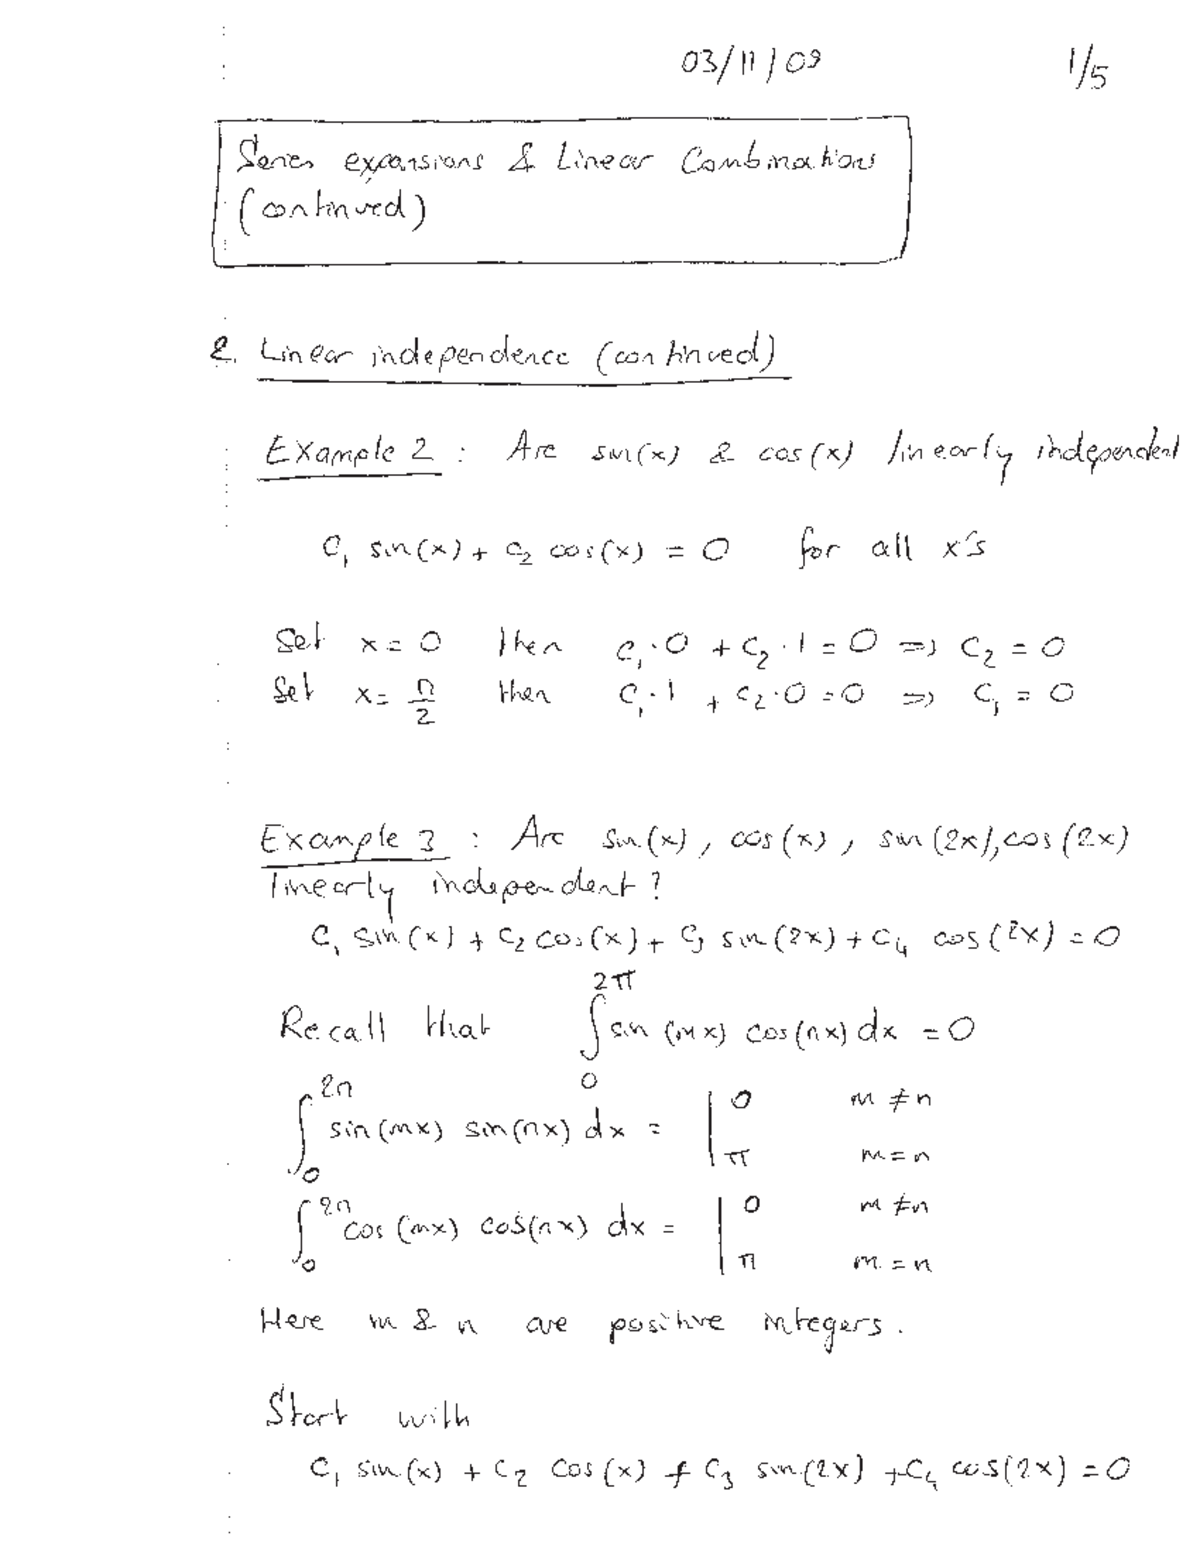 03/11/09 1/5
Series expansions & Linear Combinations
(continued)
2. Linear independence (continued)
Example 2 : Are sin(x) & cos(x) linearly independent
C₁ sin(x) + C₂ cos(x) = 0 for all x's
Set x = 0 then C₁·0 + C₂·1 = 0 ⇒ C₂ = 0
Set x = π/2 then C₁·1 + C₂·0 = 0 ⇒ C₁ = 0
Example 3 : Are sin(x), cos(x), sin(2x), cos(2x)
linearly independent?
C₁ sin(x) + C₂ cos(x) + C₃ sin(2x) + C₄ cos(2x) = 0
Recall that ∫₀^2π sin(mx) cos(nx) dx = 0
∫₀^2π sin(mx) sin(nx) dx = | 0 m ≠ n
π m = n
∫₀^2π cos(mx) cos(nx) dx = | 0 m ≠ n
π m = n
Here m & n are positive integers.
Start with
C₁ sin(x) + C₂ cos(x) + C₃ sin(2x) + C₄ cos(2x) = 0